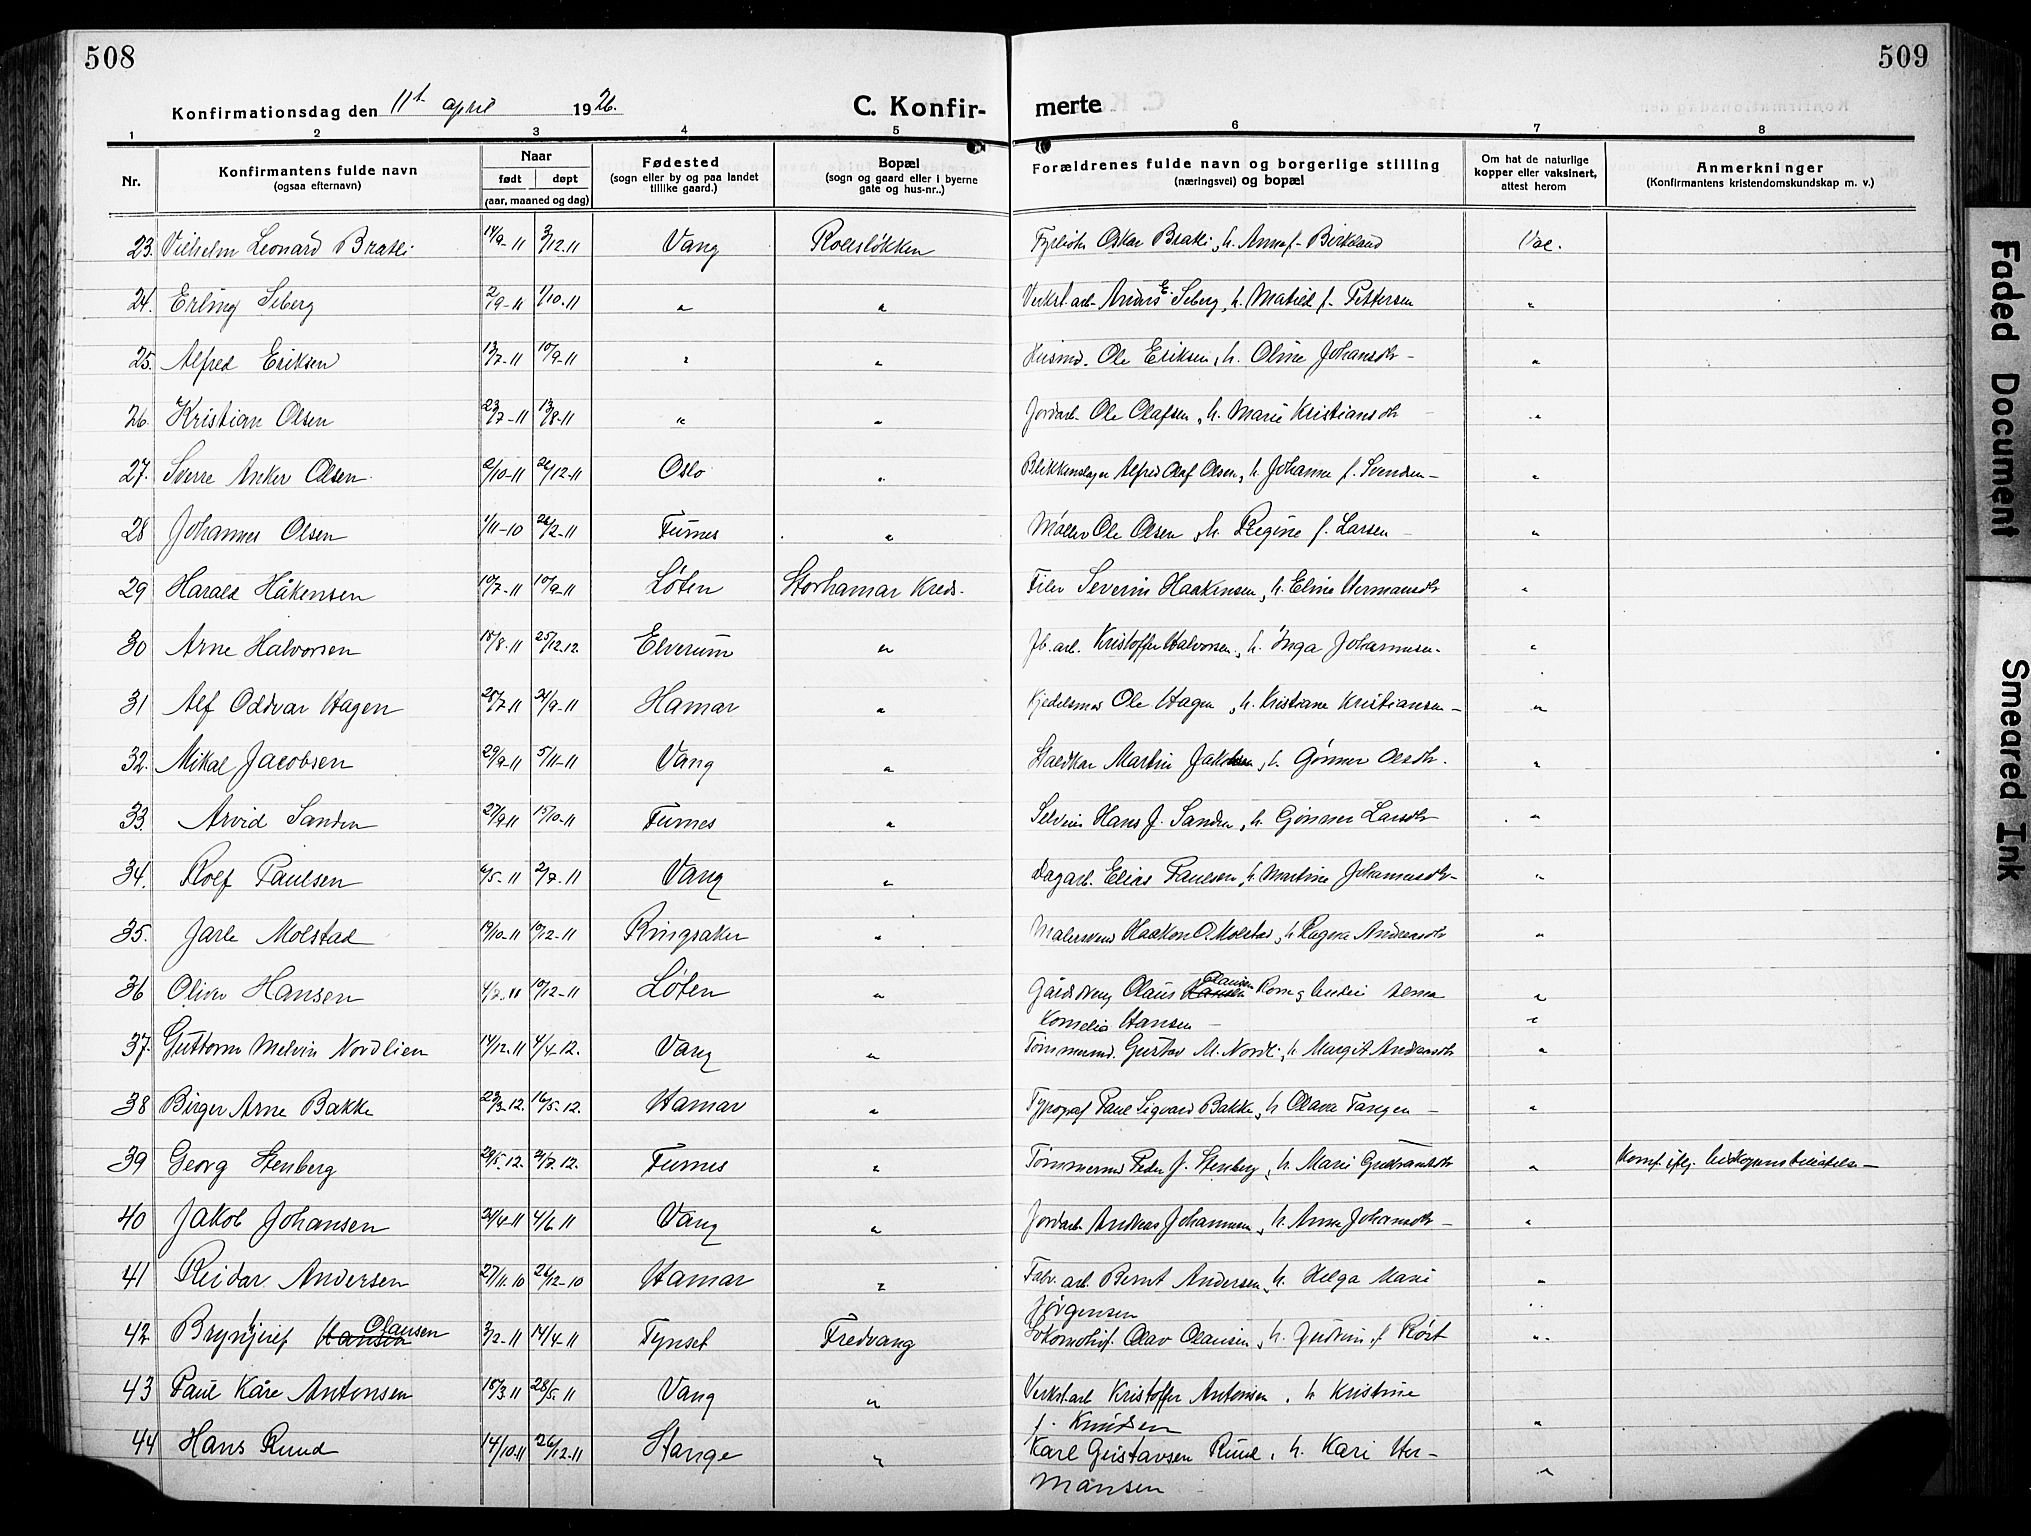 508
509
Konfirmationsdag den 11t april 1926. C. Konfir- merte
1 2 3 4 5 6 7 8
Nr. Konfirmantens fulde navn (ogsaa efternavn) Naar født døpt (aar, maaned og dag) Fødested (sogn eller by og paa landet tillike gaard.) Bopæl (sogn og gaard eller i byerne gate og hus-nr..) Forældrenes fulde navn og borgerlige stilling (næringsvei) og bopæl Om hat de naturlige kopper eller vaksinert, attest herom Anmerkninger (Konfirmantens kristendomskundskap m. v.)
23. Vilhelm Leonard Bratli 14/9-11 3/12-11 Vang Rolsløkken Oskar Bratli, h. Anna f. Birkland Vac.
24. Erling Seberg 2/9-11 1/10-11 " " Verkst.arb. E. Seberg, h. f. Pettersen "
25. Alfred Eriksen 13/7-11 10/9-11 " " Husmd. Ole Eriksen, h. Oline Johansdtr - "
26. Kristian Olsen 23/7-11 13/8-11 " " Jordarb. Ole Olafsen, h. Marie Kristiansdtr "
27. Sverre Anker Olsen 2/10-11 26/12-11 Oslo " Blikkenslager Alfred Olaf Olsen, h. Johanne f. - "
28 Johannes Olsen 1/11-10 26/2-11 Furnes " Møller Ole Olsen, h. Regine f. Larsen "
29 Harald Håkensen 10/7-11 10/9-11 Løten Storhamar Kreds. Filer Severin Haakensen, h. Eline Hermansdtr "
30 Arne Halvorsen 18/8-11 25/12.12. Elverum " Jb. arb. Kristoffer Halvorsen, h. Inga Johannesen. "
31 Alf Oddvar Hagen 28/7-11 24/9-11 Hamar " Kjedelsmed Ole Hagen, h. Kristiane Kristiansen - "
32. Mikal Jacobsen 29/9-11 5/11-11 Vang " Staldkar Martin Jakobsen, h. Gønner Olsdtr. "
33. Arvid Sanden 27/9 11 15/10-11 Furnes " Selveier Hans J. Sanden, h. Gønner Larsdtr "
34. Rolf Paulsen 6/5-11 2/7-11 Vang " Dagarb. Elias Paulsen, h. Martine Johannesdtr - "
35. Jarle Molstad 19/10-11 10/12-11 Ringsaker " Malersvend Haakon O. Molstad, h. Ragna Andreasdtr "
36 Oliver Hansen 4/7-11 10/12-11 Løten " Gårdsdreng Olaus Hansen Olausen "
Kornelia Hansen - "
37. Guttorm Melvin Nordlien 14/12.11 4/4-12. Vang " Tømmermd. Gustav M. Nordli, h. Margit Andersdtr "
38 Birger Arne Bakke 23/3-12. 16/5-12. Hamar " Typograf Paul Sigvard Bakke, h. Olava Tangen - "
39 Georg Stenberg 29/5.12. 21/7.12. Furnes " Tømmermd Peder J. Stenberg, h. Marie " Konf. iflg. -
40 Jakob Johansen 24/4-11 4/6 11 Vang " Jordarb. Andreas Johannesen, h. Anna Johansdtr - "
41 Reidar Andersen 27/11.10 26/12-10 Hamar " Fabr. arb. Bernt Andersen, h. Helga Marie "
Jørgensen
42 Brynjulf Hansen Olausen 3/2-11 14/4-11 Tynset Fredvang Lokomotivf. Olav Olausen, h. Gudrun f. Røst "
43 Paul Kåre Antonsen 18/3 11 28/5.11 Vang " Verkst.arb Kristoffer Antonsen, h. Kristine
f. Knudsen "
44 Hans Ruud 14/10.11 26/12-11 Stange " Karl Gustavsen Ruud, h. Kari Her-
mansen "
Faded Document
Smeared Ink